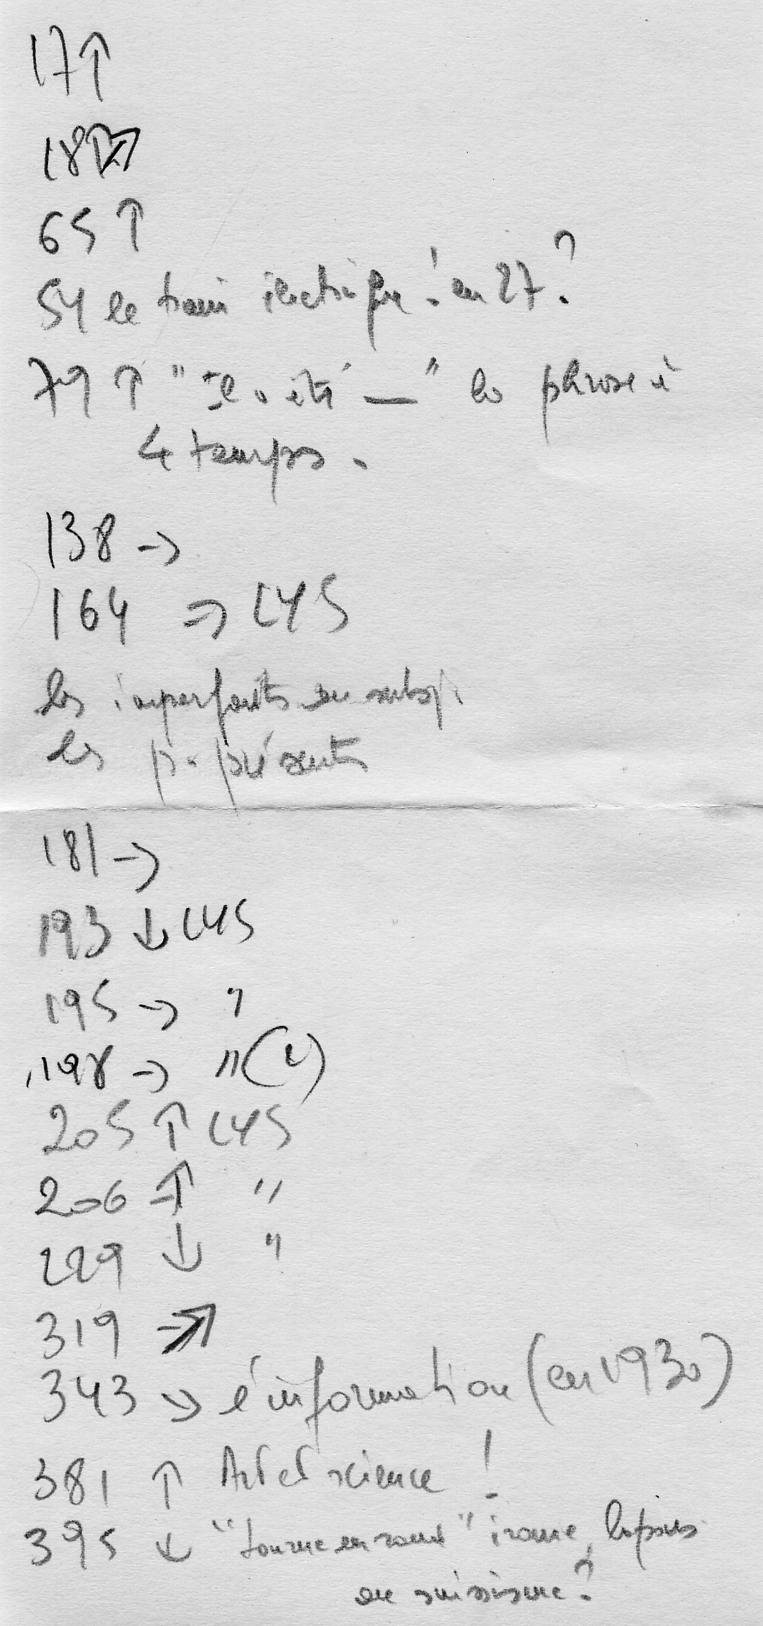 17 ↑
18 ↗
65 ↑
54 le train électrique ! en 27 ?
79 ↑ "Il a été —" la phrase à
4 temps.
138 →
164 → LYS
les imparfaits du subj.
les p. présents
181 →
193 ↓ LYS
195 → "
198 → " (2)
205 ↑ LYS
206 ↑ "
229 ↓ "
319 ↗
343 → l'information (en 1930)
381 ↑ Art et science !
395 ↓ "tourne en rond" ironie, lapsus
ou suissisme ?